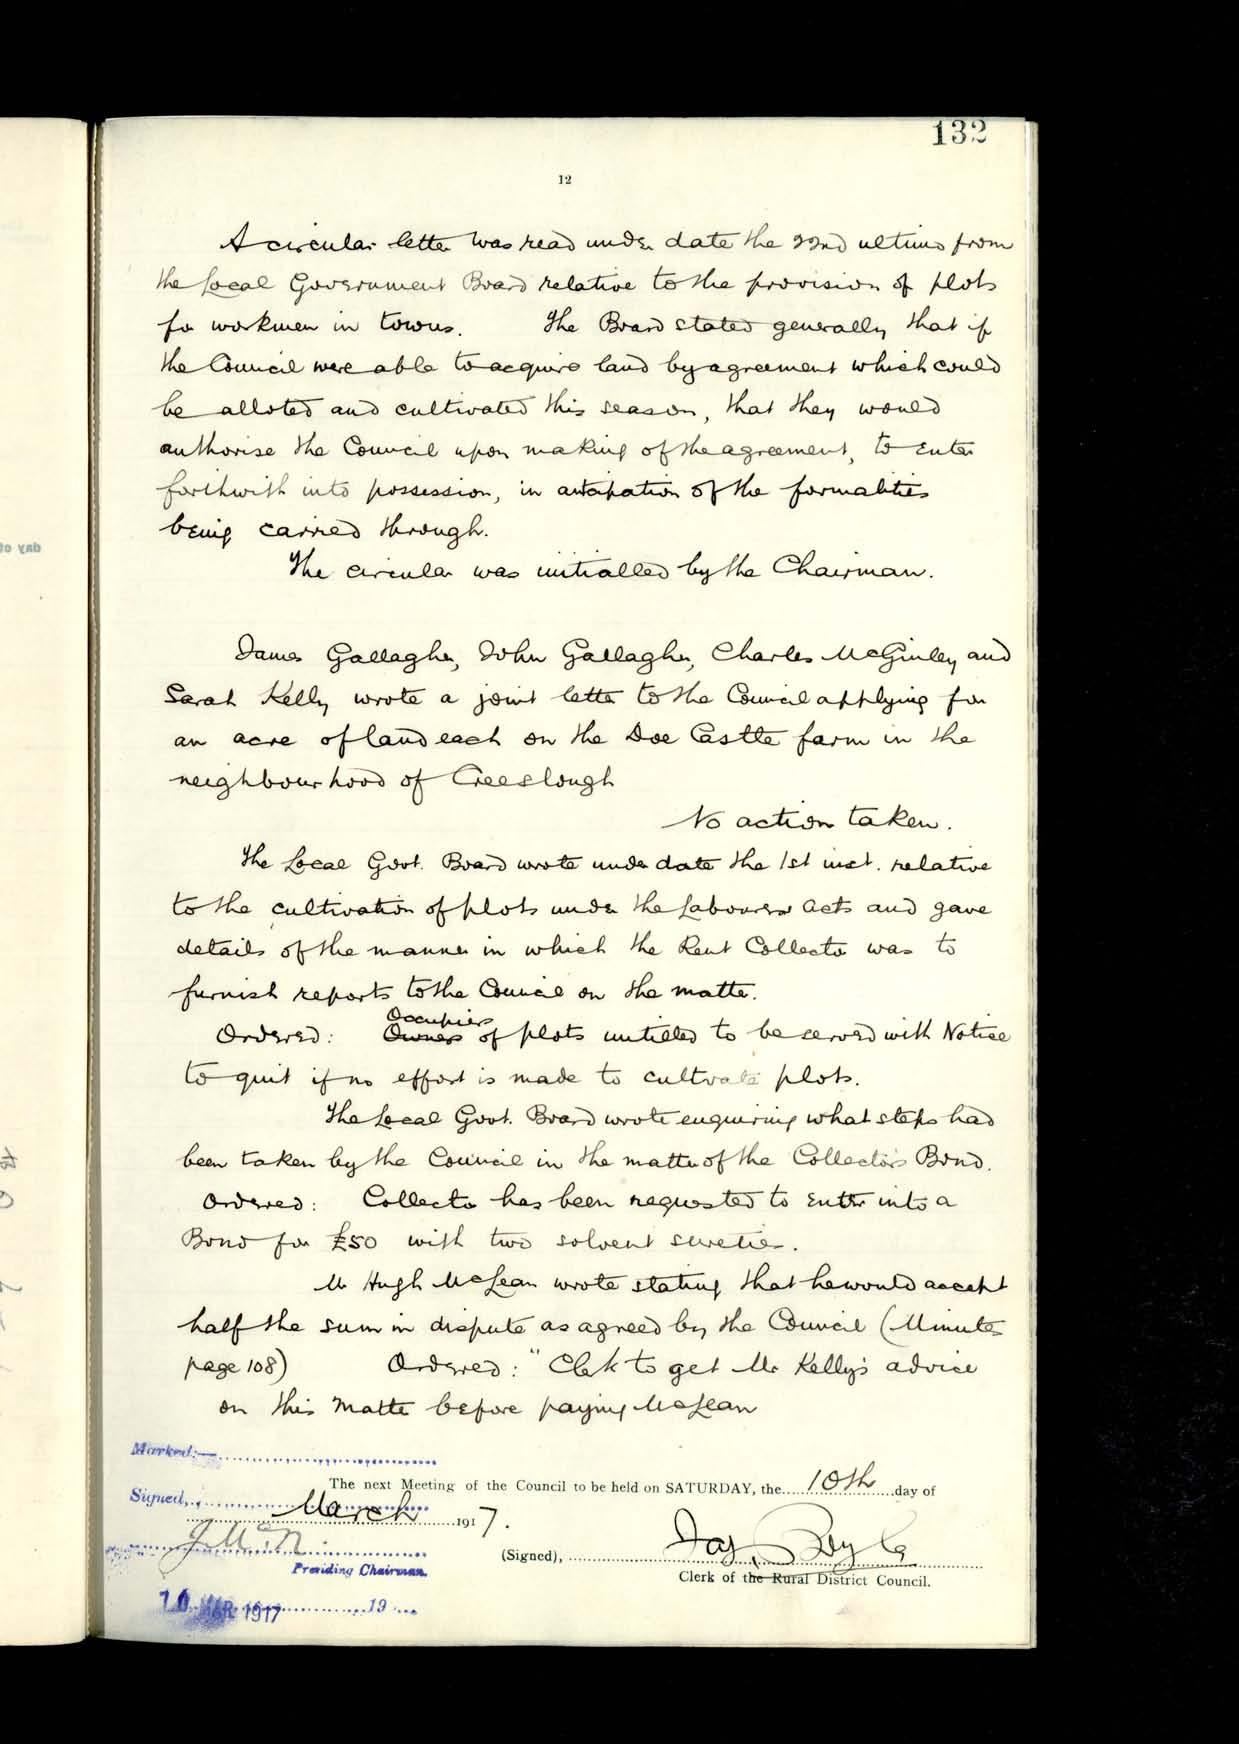 132
12
A circular letter was read under date the 22nd ultimo from
the Local Government Board relative to the provision of plots
for workmen in towns. The Board stated generally that if
the Council were able to acquire land by agreement which could
be alloted and cultivated this season, that they would
authorise the Council upon making of the agreement, to enter
forthwith into possession, in anticipation of the formalities
being carried through.
The circular was initialled by the Chairman.
James Gallagher, John Gallagher, Charles McGinley and
Sarah Kelly wrote a joint letter to the Council applying for
an acre of land each on the Doe Castle farm in the
neighbourhood of Creeslough
No action taken.
The Local Govt. Board wrote under date the 1st inst. relative
to the cultivation of plots under the Labourers Acts and gave
details of the manner in which the Rent Collector was to
furnish reports to the Council on the matter.
Occupiers
Ordered: Owners of plots untilled to be served with Notice
to quit if no effort is made to cultivate plots.
The Local Govt. Board wrote enquiring what steps had
been taken by the Council in the matter of the Collector's Bond.
Ordered: Collector has been requested to enter into a
Bond for £50 with two solvent sureties.
Mr Hugh McLean wrote stating that he would accept
half the sum in dispute as agreed by the Council (Minutes
page 108) Ordered: "Clerk to get Mr Kelly's advice
on this matter before paying McLean
Marked:—
The next Meeting of the Council to be held on SATURDAY, the 10th day of
Signed,
March 1917.
J. McN.
(Signed), Jas. Boyle
Presiding Chairman.
Clerk of the Rural District Council.
10 MAR 1917 19
day of